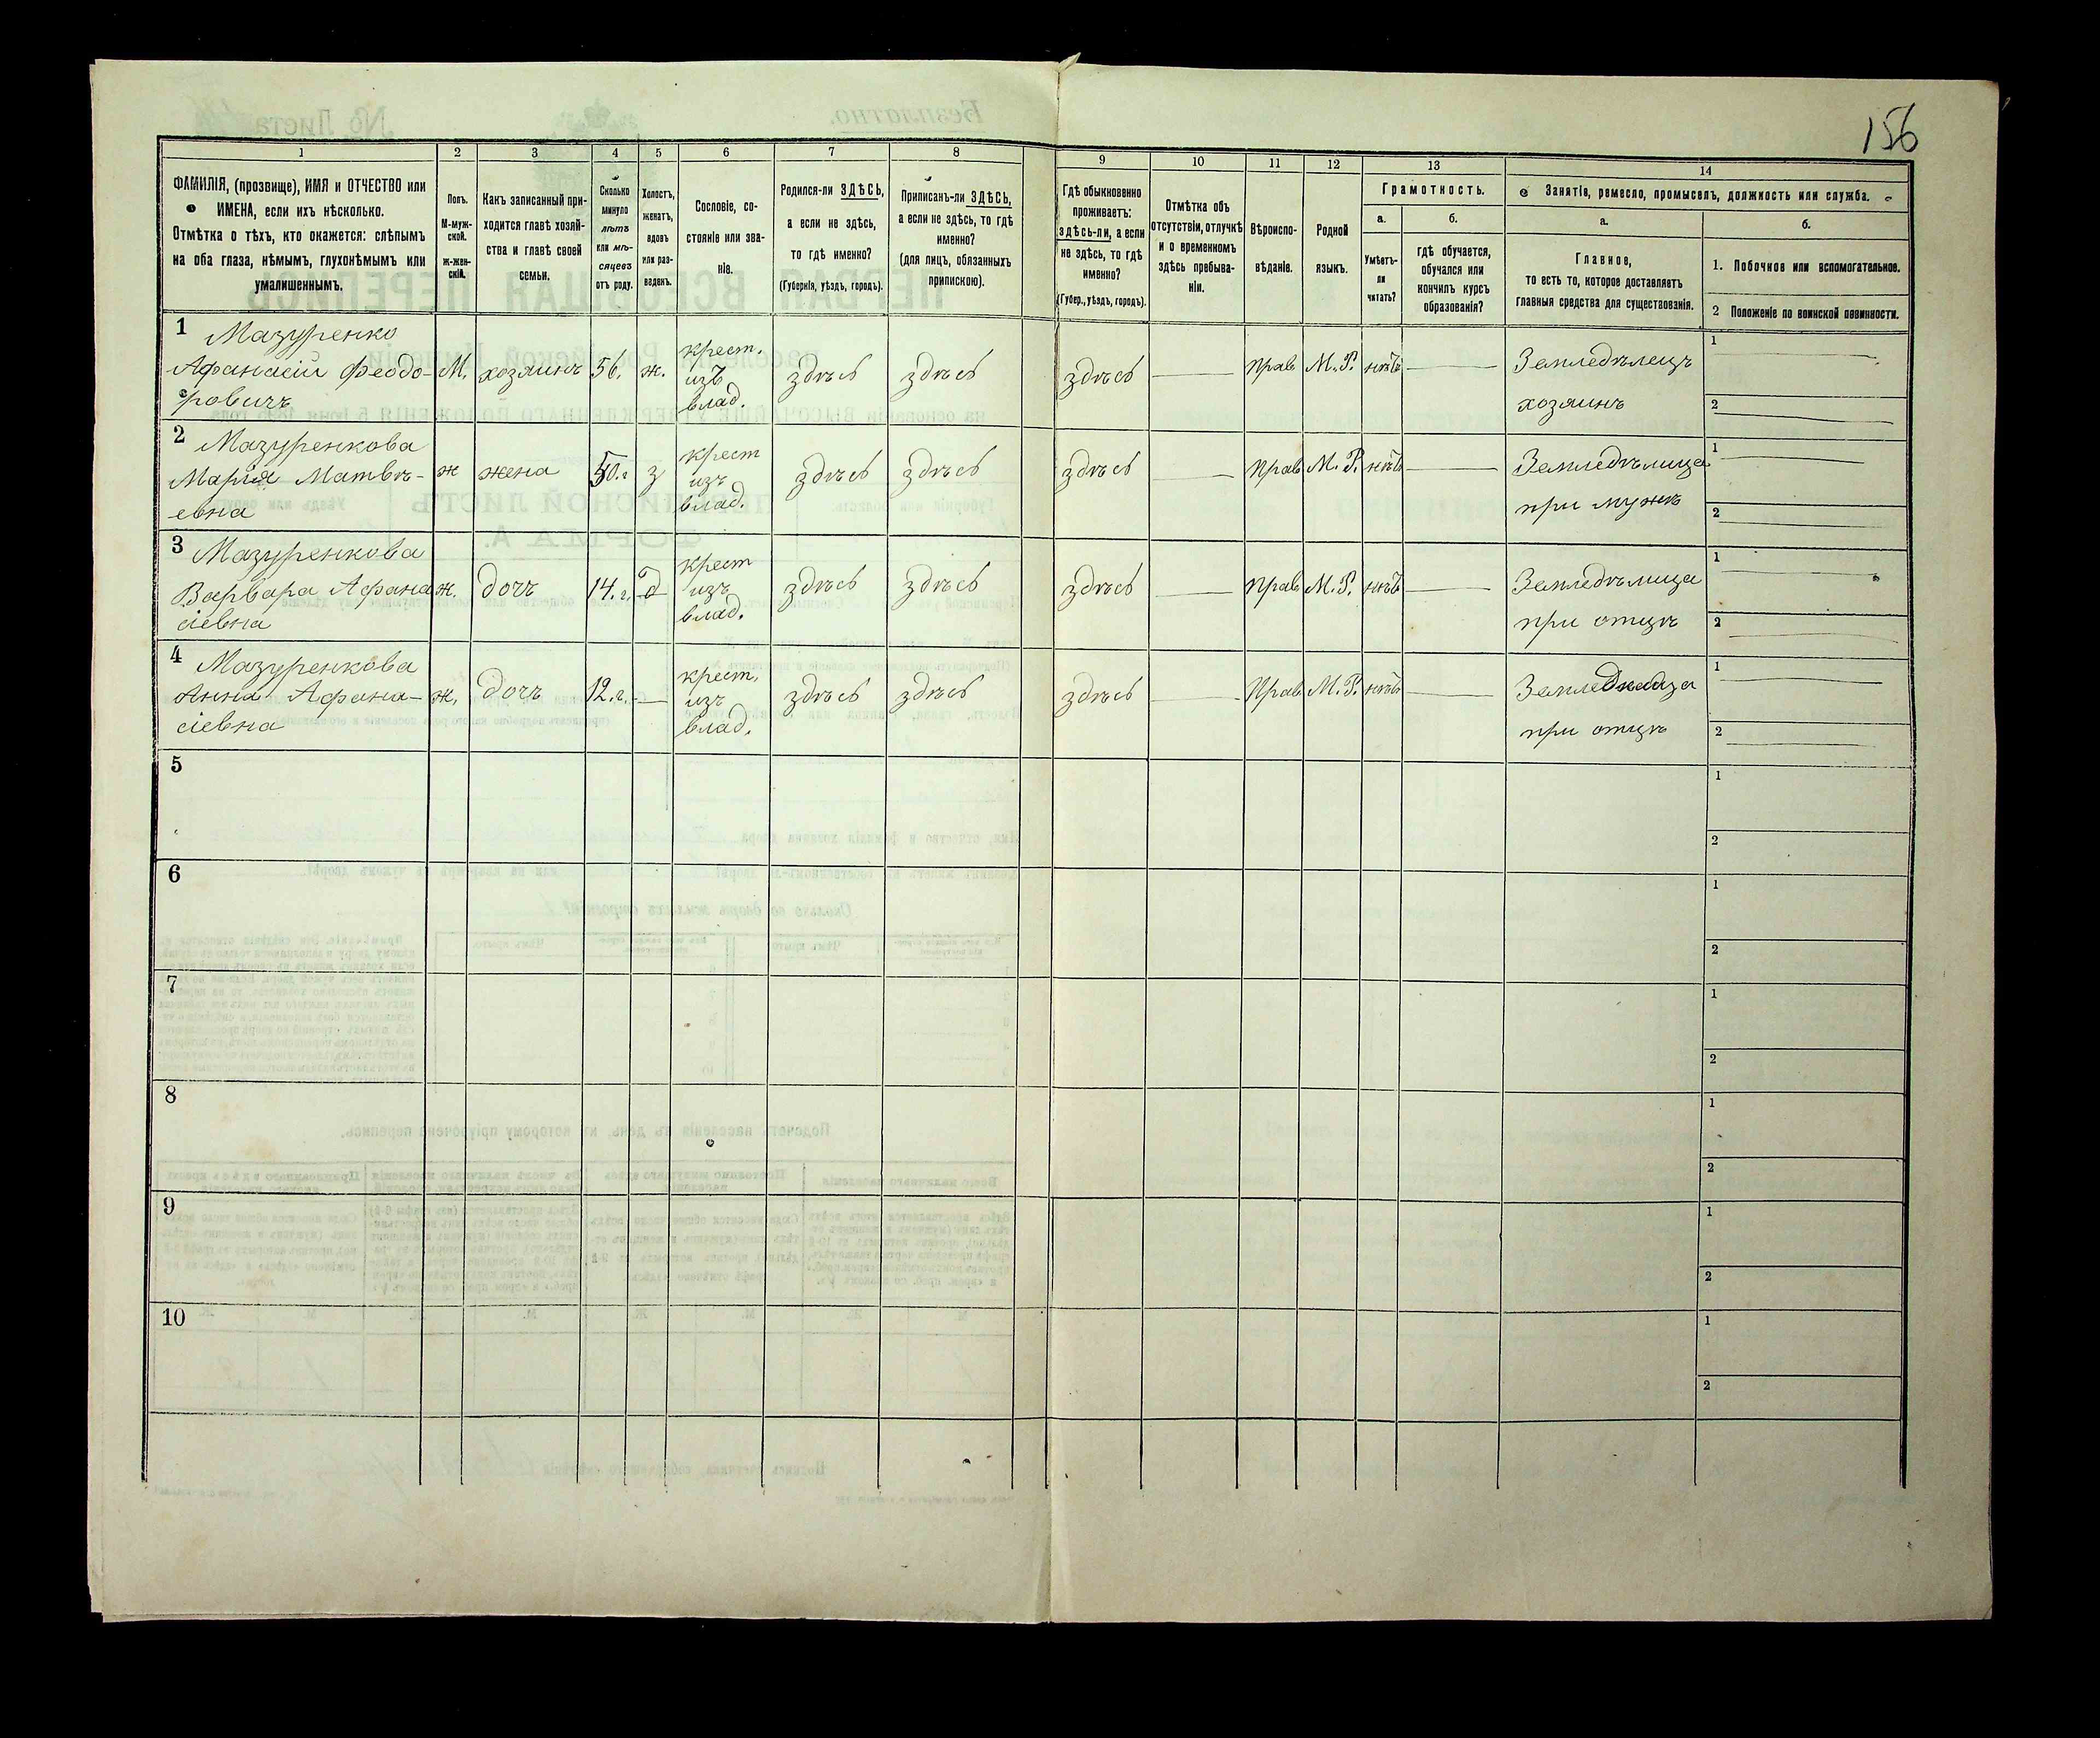 156
1 2 3 4 5 6 7 8 9 10 11 12 13 14
ФАМИЛІЯ, (прозвище), ИМЯ и ОТЧЕСТВО или
ИМЕНА, если ихъ нѣсколько.
Отмѣтка о тѣхъ, кто окажется: слѣпымъ
на оба глаза, нѣмымъ, глухонѣмымъ или
умалишеннымъ.
Полъ.
М-муж-
ской.
ж-жен-
скій.
Какъ записанный при-
ходится главѣ хозяй-
ства и главѣ своей
семьи.
Сколько
минуло
лѣтъ
или мѣ-
сяцевъ
отъ роду.
Холостъ,
женатъ,
вдовъ
или раз-
веденъ.
Сословіе, со-
стояніе или зва-
ніе.
Родился-ли ЗДѢСЬ,
а если не здѣсь,
то гдѣ именно?
(Губернія, уѣздъ, городъ).
Приписанъ-ли ЗДѢСЬ,
а если не здѣсь, то гдѣ
именно?
(для лицъ, обязанныхъ
припискою).
Гдѣ обыкновенно
проживаетъ:
здѣсь-ли, а если
не здѣсь, то гдѣ
именно?
(Губер., уѣздъ, городъ).
Отмѣтка объ
отсутствіи, отлучкѣ
и о временномъ
здѣсь пребыва-
ніи.
Вѣроиспо-
вѣданіе.
Родной
языкъ.
Грамотность.
а.
Умѣетъ-
ли
читать?
б.
гдѣ обучается,
обучался или
кончилъ курсъ
образованія?
Занятіе, ремесло, промыселъ, должность или служба.
а.
Главное,
то есть то, которое доставляетъ
главныя средства для существованія.
б.
1. Побочное или вспомогательное.
2 Положеніе по воинской повинности.
1 Мазуренко
Афанасій Феодо-
ровичъ
М.
хозяинъ
56.
ж.
крест.
изъ
влад.
здѣсь
здѣсь
здѣсь
Прав
М. Р.
нѣтъ
Земледѣлецъ
хозяинъ
1
2
2 Мазуренкова
Марія Матвѣ-
евна
ж
жена
50.г
з
крест
изъ
влад.
здѣсь
здѣсь
здѣсь
Прав
М. Р.
нѣтъ
Земледѣлица
при мужѣ
1
2
3 Мазуренкова
Варвара Афана
сіевна
ж.
дочь
14.г.
д
крест
изъ
влад.
здѣсь
здѣсь
здѣсь
Прав
М. Р.
нѣтъ
Земледѣлица
при отцѣ
1
2
4 Мазуренкова
Анна Афана-
сіевна
ж.
дочь
12.г.
крест.
изъ
влад.
здѣсь
здѣсь
здѣсь
Прав
М. Р.
нѣтъ
Земледѣлица
при отцѣ
1
2
5
1
2
6
1
2
7
1
2
8
1
2
9
1
2
10
1
2